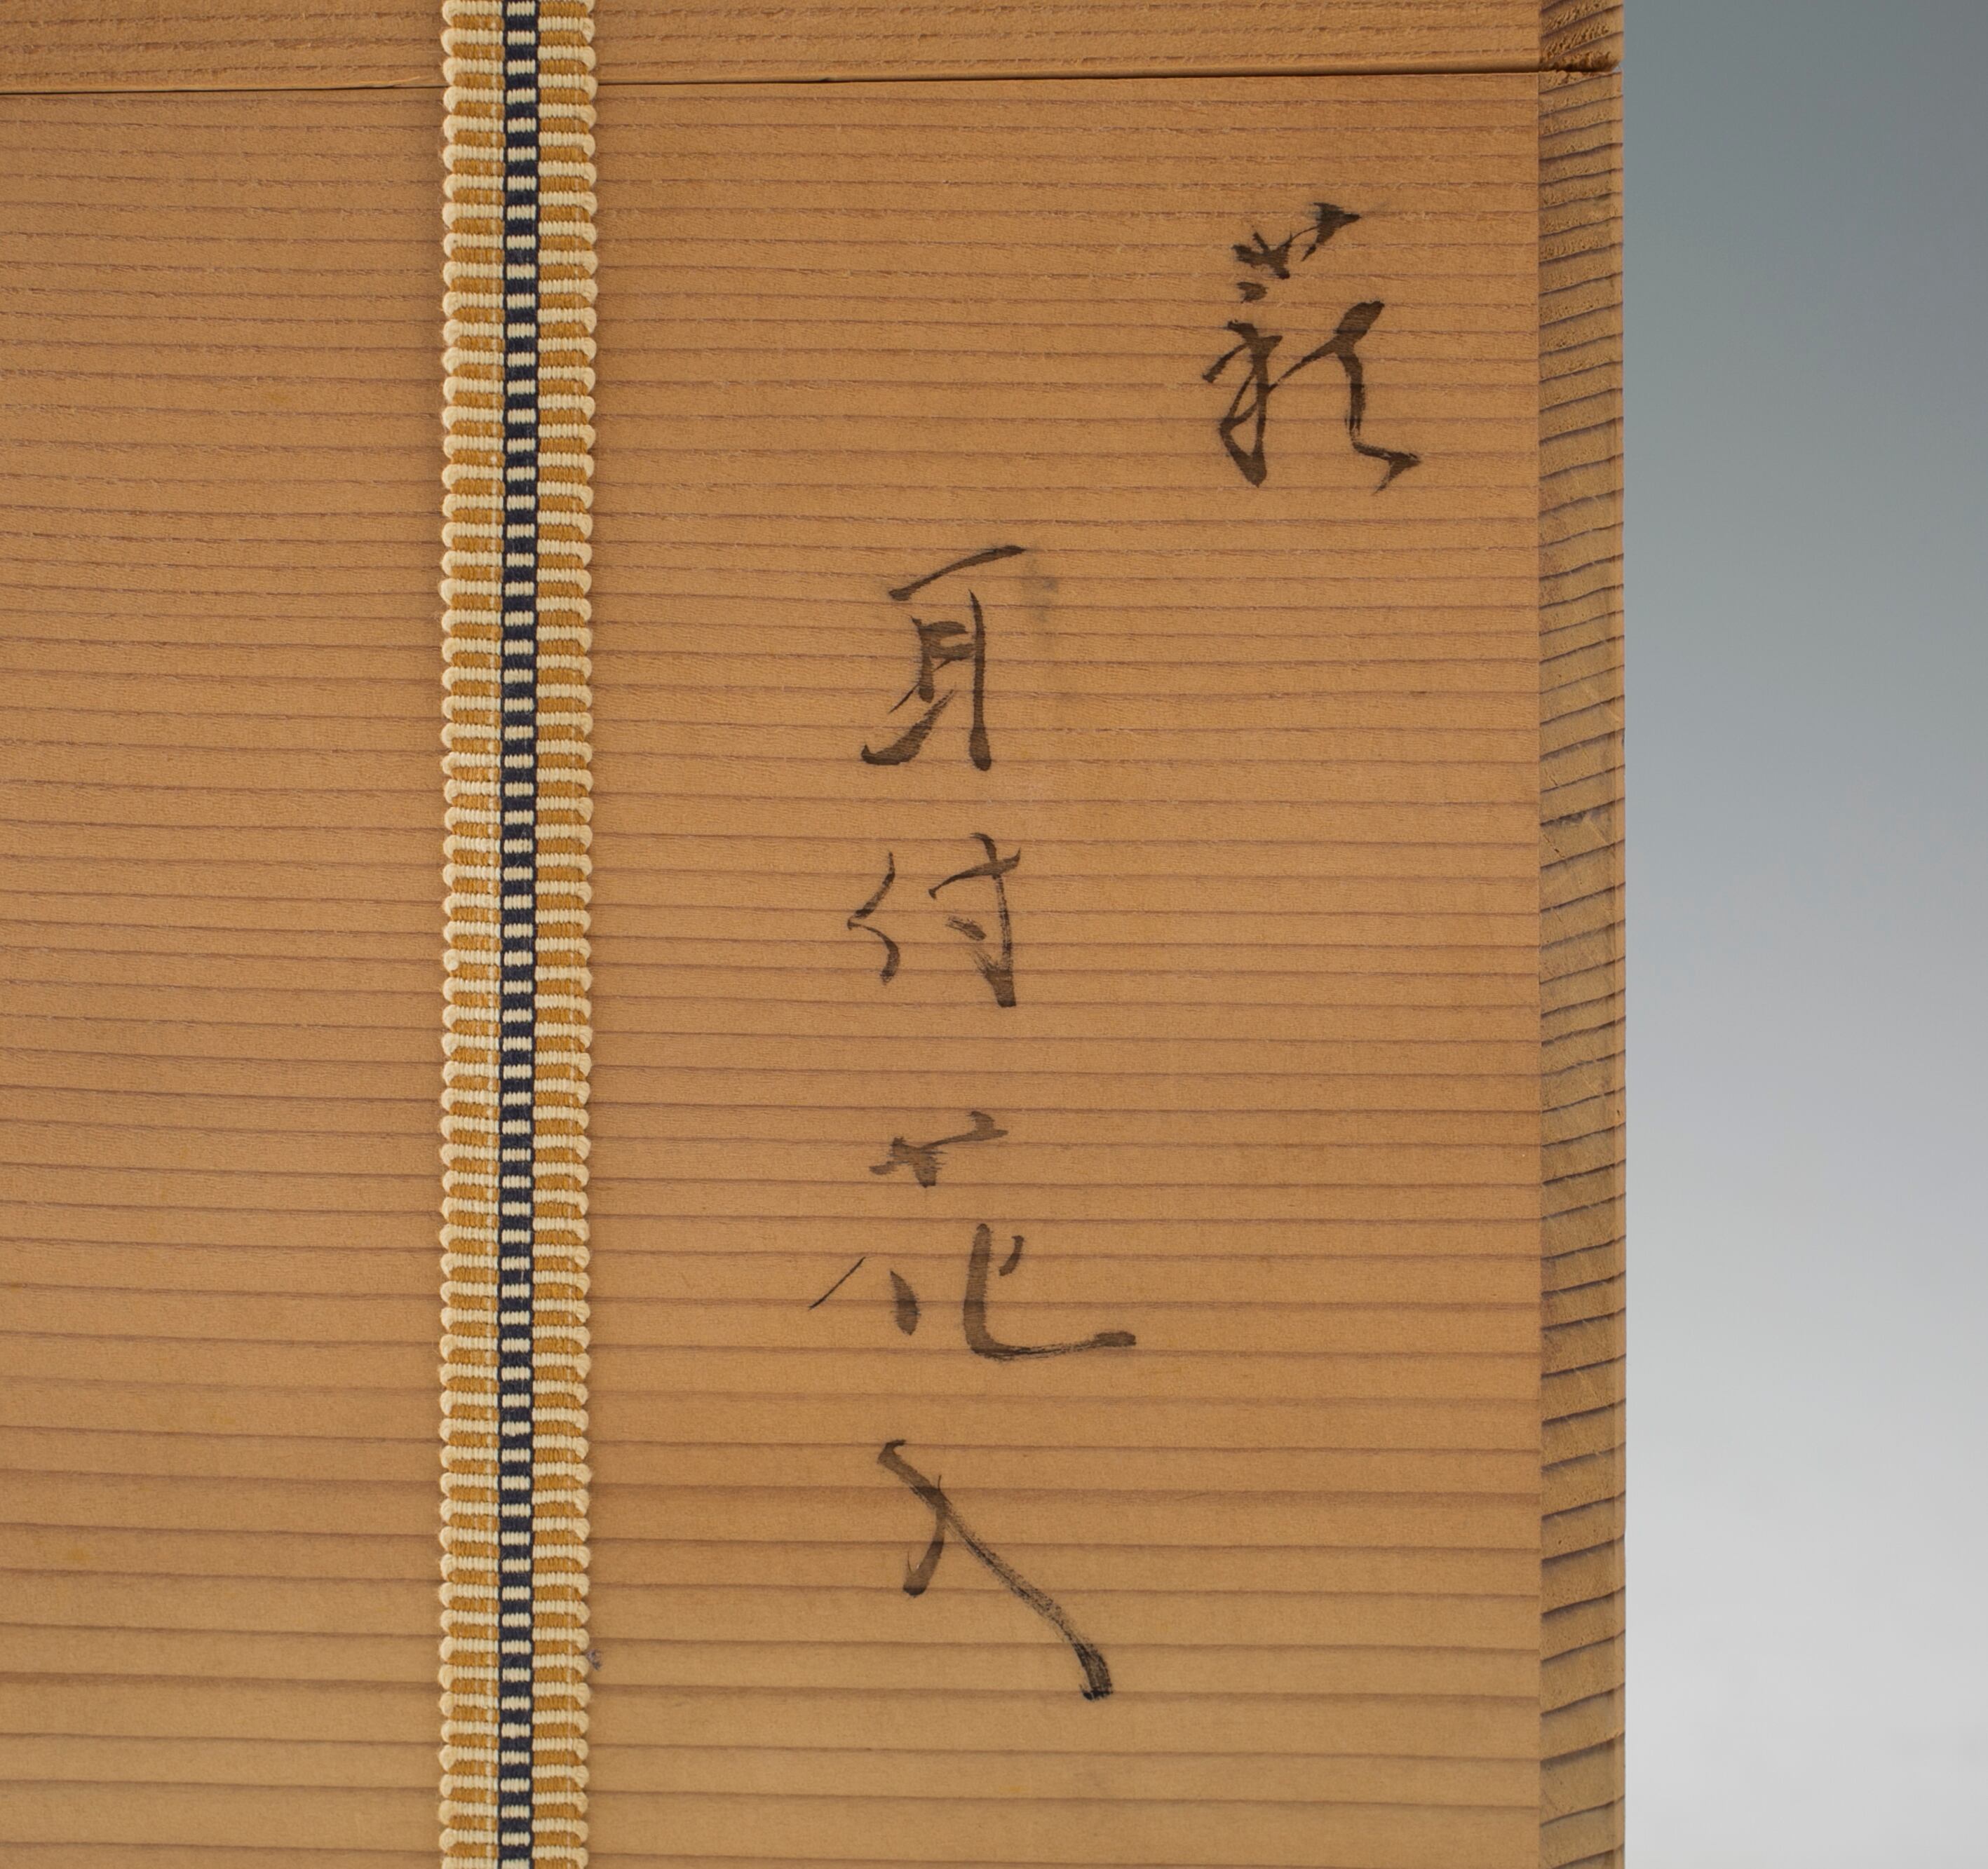 萩
耳付花入